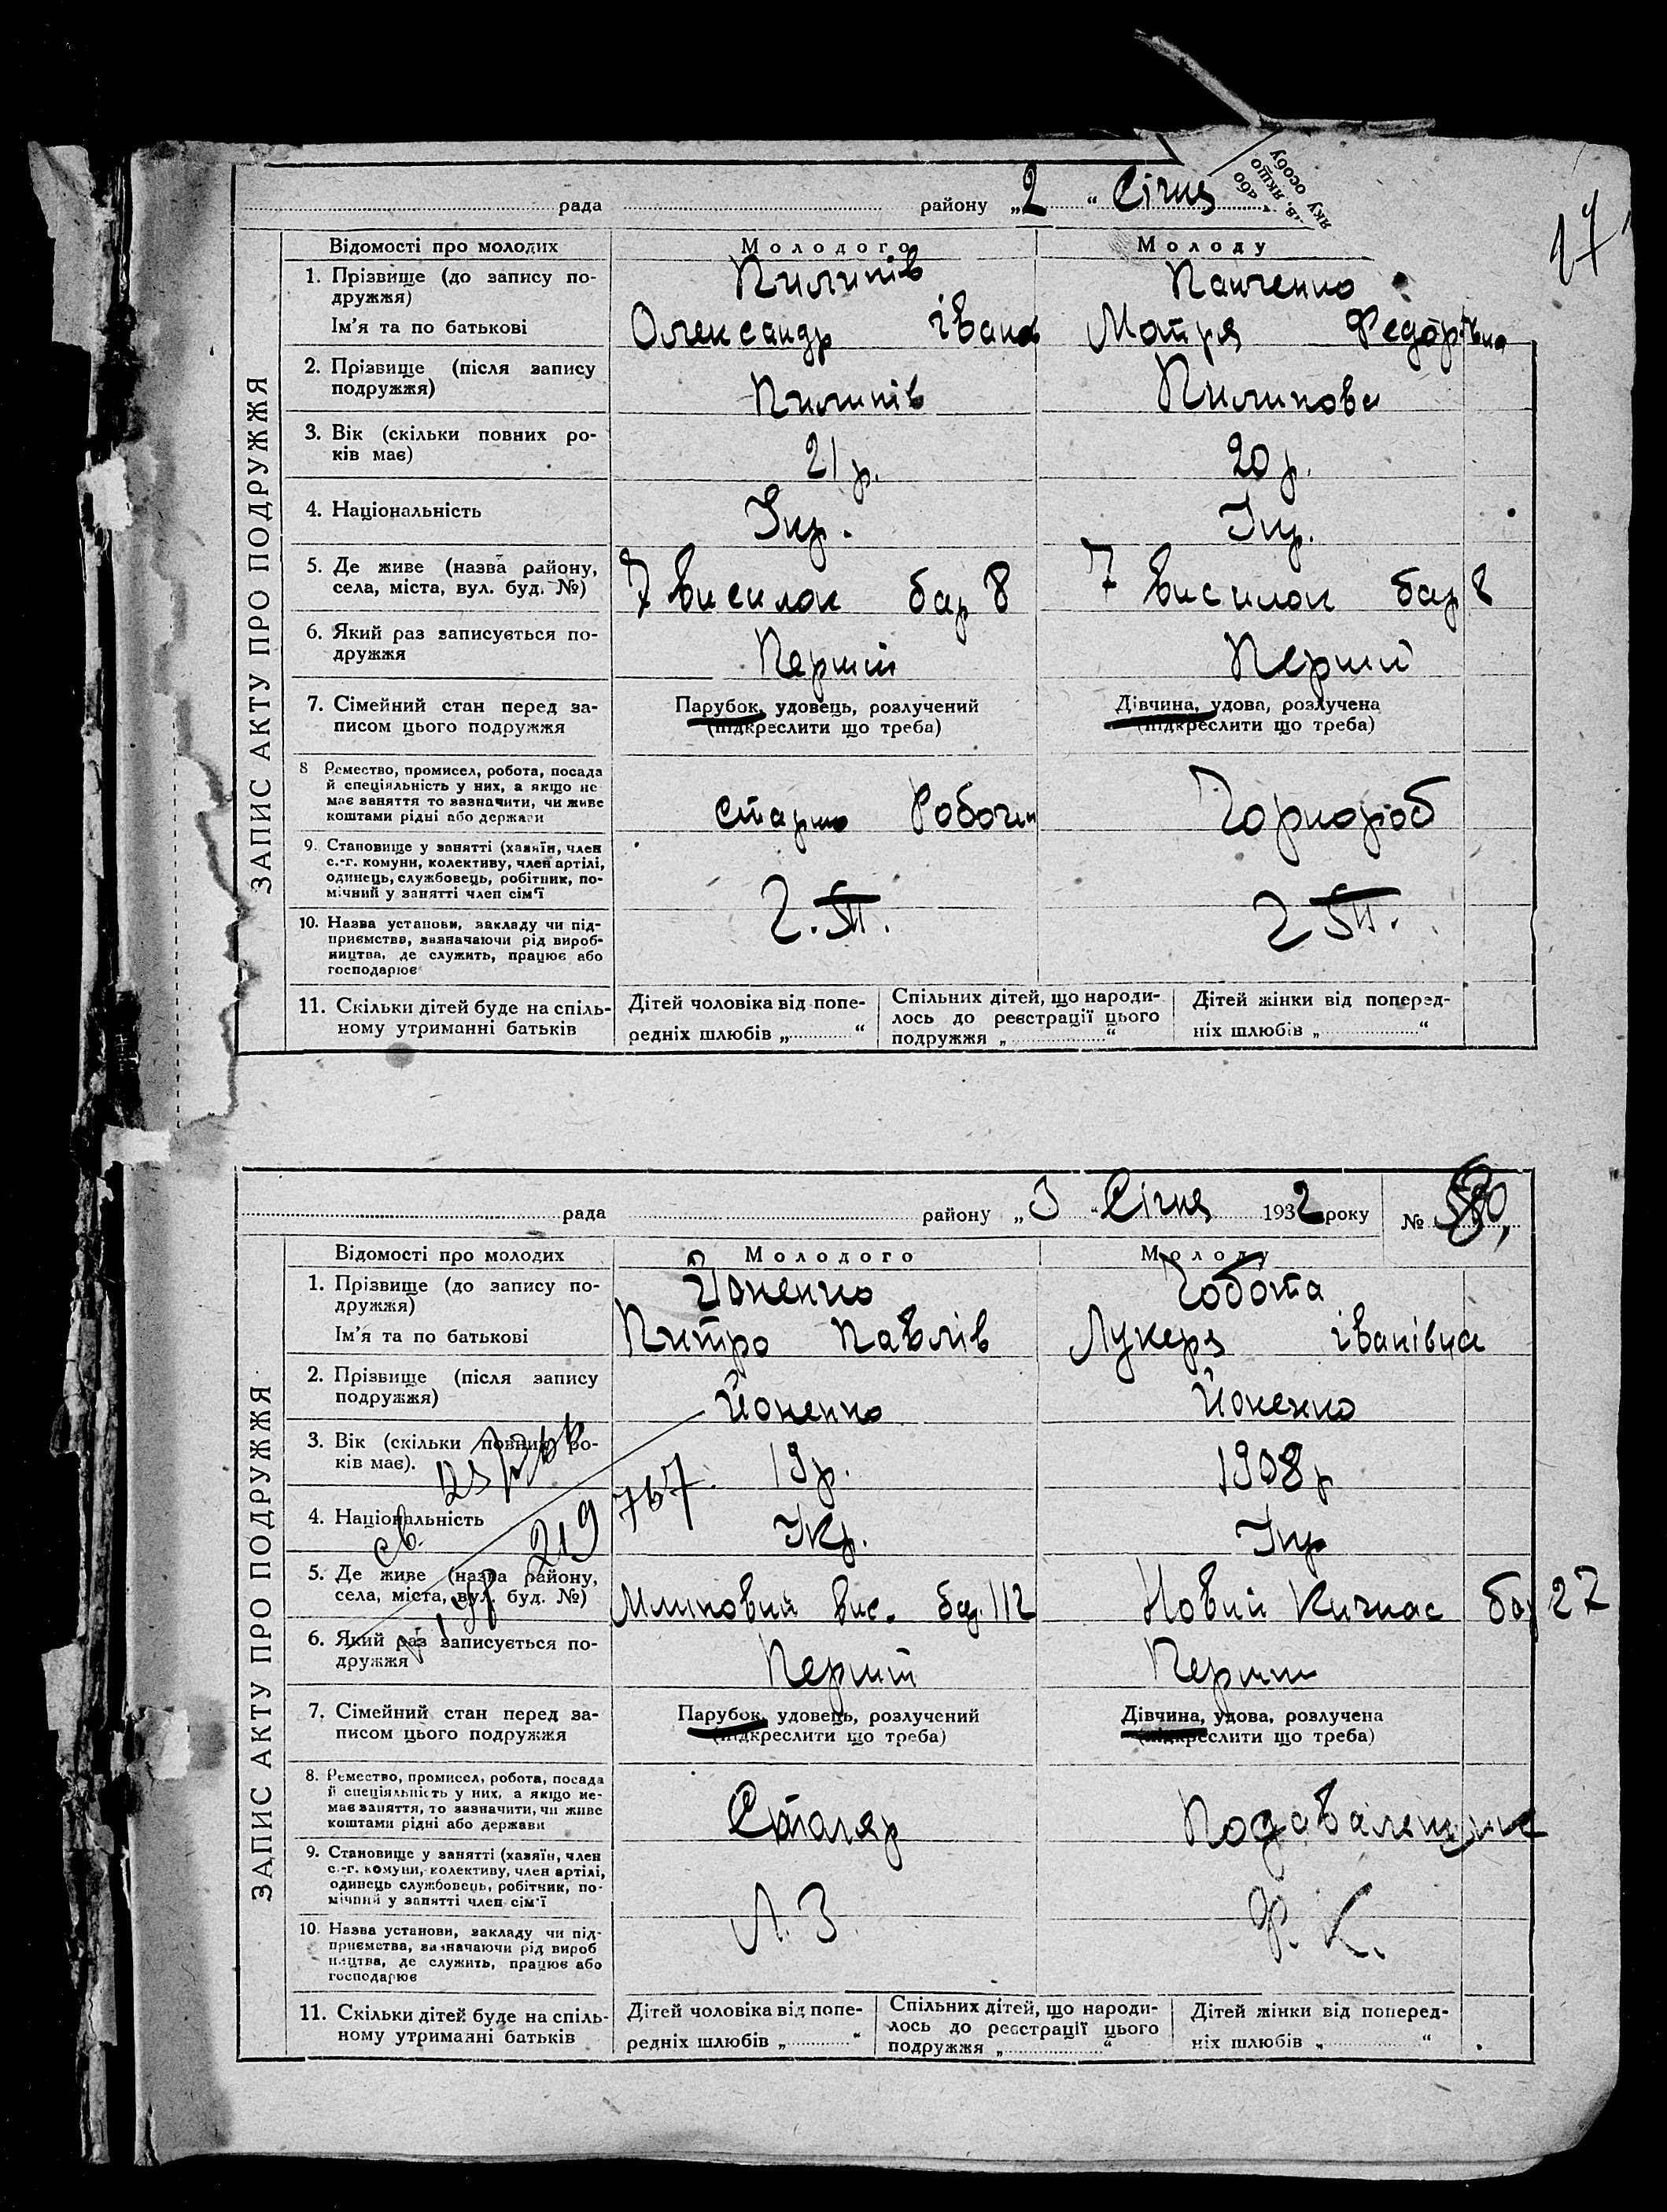 17
яку особу
в, якщо
або
рада району „2“ Січня
ЗАПИС АКТУ ПРО ПОДРУЖЖЯ
Відомості про молодих Молодого Молоду
1. Прізвище (до запису по- Пилипів Панченко
дружжя)
Ім'я та по батькові Олександр іванов Мотря Федорівна
2. Прізвище (після запису
подружжя) Пилипів Пилипова
3. Вік (скільки повних ро-
ків має) 21 р. 20 р.
4. Національність Укр. Укр.
5. Де живе (назва району,
села, міста, вул. буд. №) 7 висилок бар 8 7 висилок бар 8
6. Який раз записується по-
дружжя Перший Перший
7. Сімейний стан перед за- Парубок, удовець, розлучений Дівчина, удова, розлучена
писом цього подружжя (підкреслити що треба) (підкреслити що треба)
8 Ремество, промисел, робота, посада
й спеціяльність у них, а якщо не
має заняття то зазначити, чи живе
коштами рідні або держави Робочий Чорнороб
9. Становище у занятті (хазяїн, член
с.-г. комуни, колективу, член артілі,
одинець, службовець, робітник, по-
мічний у занятті член сім'ї
10. Назва установи, закладу чи під-
приємства, зазначаючи рід вироб-
ництва, де служить, працює або
господарює
11. Скільки дітей буде на спіль- Дітей чоловіка від попе- Спільних дітей, що народи- Дітей жінки від поперед-
ному утриманні батьків редніх шлюбів „ “ лось до реєстрації цього ніх шлюбів „ “
подружжя „ “
рада району „3“ Січня 1932 року №
ЗАПИС АКТУ ПРО ПОДРУЖЖЯ
Відомості про молодих Молодого Молоду
1. Прізвище (до запису по- Йоненко Чобота
дружжя)
Ім'я та по батькові Питро Павлів Лукеря іванівна
2. Прізвище (після запису
подружжя) Йоненко Йоненко
3. Вік (скільки повних ро-
ків має). 19 р. 1908 р
767
219
4. Національність Укр. Укр
5. Де живе (назва району,
села, міста, вул. буд. №) Млиновий вис. бар. 112 Новий Кичкас бар 27
6. Який раз записується по-
дружжя Перший Перший
7. Сімейний стан перед за- Парубок, удовець, розлучений Дівчина, удова, розлучена
писом цього подружжя (підкреслити що треба) (підкреслити що треба)
8. Ремество, промисел, робота, посада
й спеціяльність у них, а якщо не-
має заняття, то зазначити, чи живе
коштами рідні або держави Столяр
9. Становище у занятті (хазяїн, член
с.-г. комуни, колективу, член артілі,
одинець службовець, робітник, по-
мічний у занятті член сім'ї
Л. З Ф. К.
10. Назва установи, закладу чи під-
приємства, зазначаючи рід вироб
ництва, де служить, працює або
господарює
11. Скільки дітей буде на спіль- Дітей чоловіка від попе- Спільних дітей, що народи- Дітей жінки від поперед-
ному утриманні батьків редніх шлюбів „ “ лось до реєстрації цього ніх шлюбів „ “
подружжя „ “